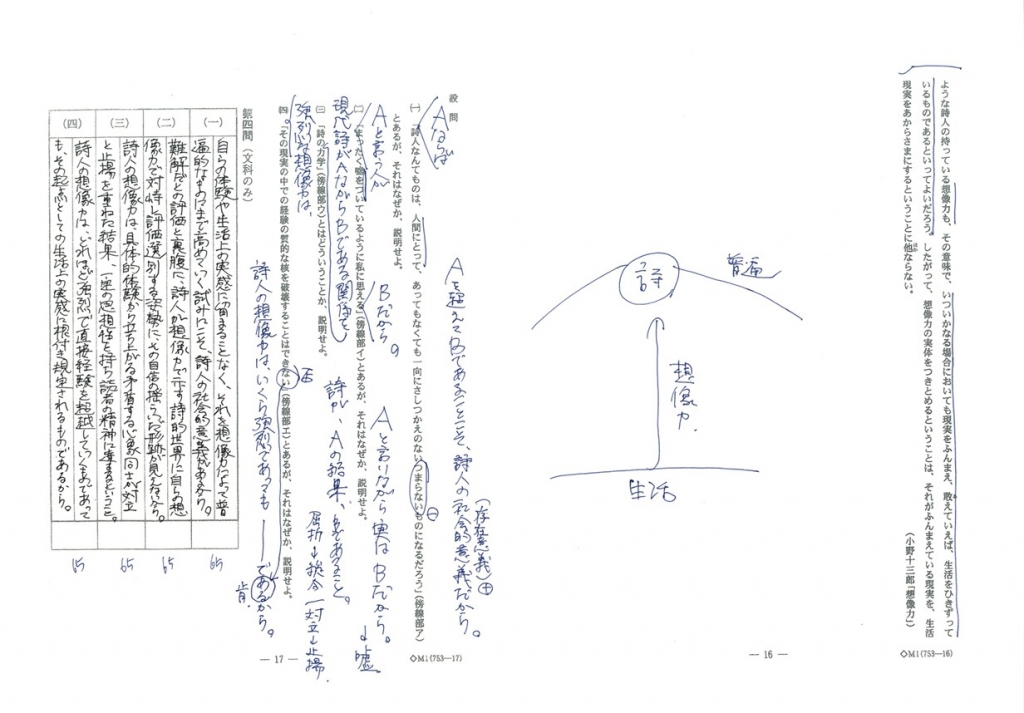 ような詩人の持っている想像力も、その意味で、いついかなる場合においても現実をふんまえ、敢えていえば、生活をひきずって
いるものであるといってよいだろう。したがって、想像力の実体をつきとめるということは、それがふんまえている現実を、生活
現実をあからさまにするということに他ならない。
ほか
(小野十三郎「想像力」)
◇M1(753—16)
普遍
詩
想像力
生活
— 16 —
設問
(一) 「詩人なんてものは、人間にとって、あってもなくても一向にさしつかえのないつまらないものになるだろう」(傍線部ア)
とあるが、それはなぜか、説明せよ。
Aならば
⊖
Aを超えてBであることこそ、詩人の社会的意義だから。
(存在意義)⊕
(二) 「まったく嘘をついているように私に思える」(傍線部イ)とあるが、それはなぜか、説明せよ。
Aと言う人が
Bだから。
Aと言いながら実はBだから。
↓嘘
(三) 「詩の力学」(傍線部ウ)とはどういうことか、説明せよ。
現代詩がAながらBである関係を、
詩が、Aの結果、Bであること。
屈折→総合 対立→止揚
(四) 「その現実の中での経験の質的な核を破壊することはできない」(傍線部エ)とあるが、それはなぜか、説明せよ。
強烈な想像力は、
否
詩人の想像力は、いくら強烈であっても——であるから。
肯
◇M1(753—17)
— 17 —
第四問(文科のみ)
(一)
自らの体験や生活上の実感に留まることなく、それを想像力によって普
遍的なものにまで高めていく試みにこそ、詩人の社会的意義があるから。
65
(二)
難解などの評価と裏腹に、詩人が想像力で示す詩的世界に自らの想
像力で対峙し評価選別する姿勢に、その自信の揺らいだ形跡が見えないから。
65
(三)
詩人の想像力は、具体的体験から立ち上がる矛盾する心象同士が対立
と止揚を重ねた結果、一定の思想性を持ち読者の精神に達するということ。
65
(四)
詩人の想像力は、どれほど強烈で直接経験を超越していくものであって
も、その起点としての生活上の実感に根付き規定されるものであるから。
65